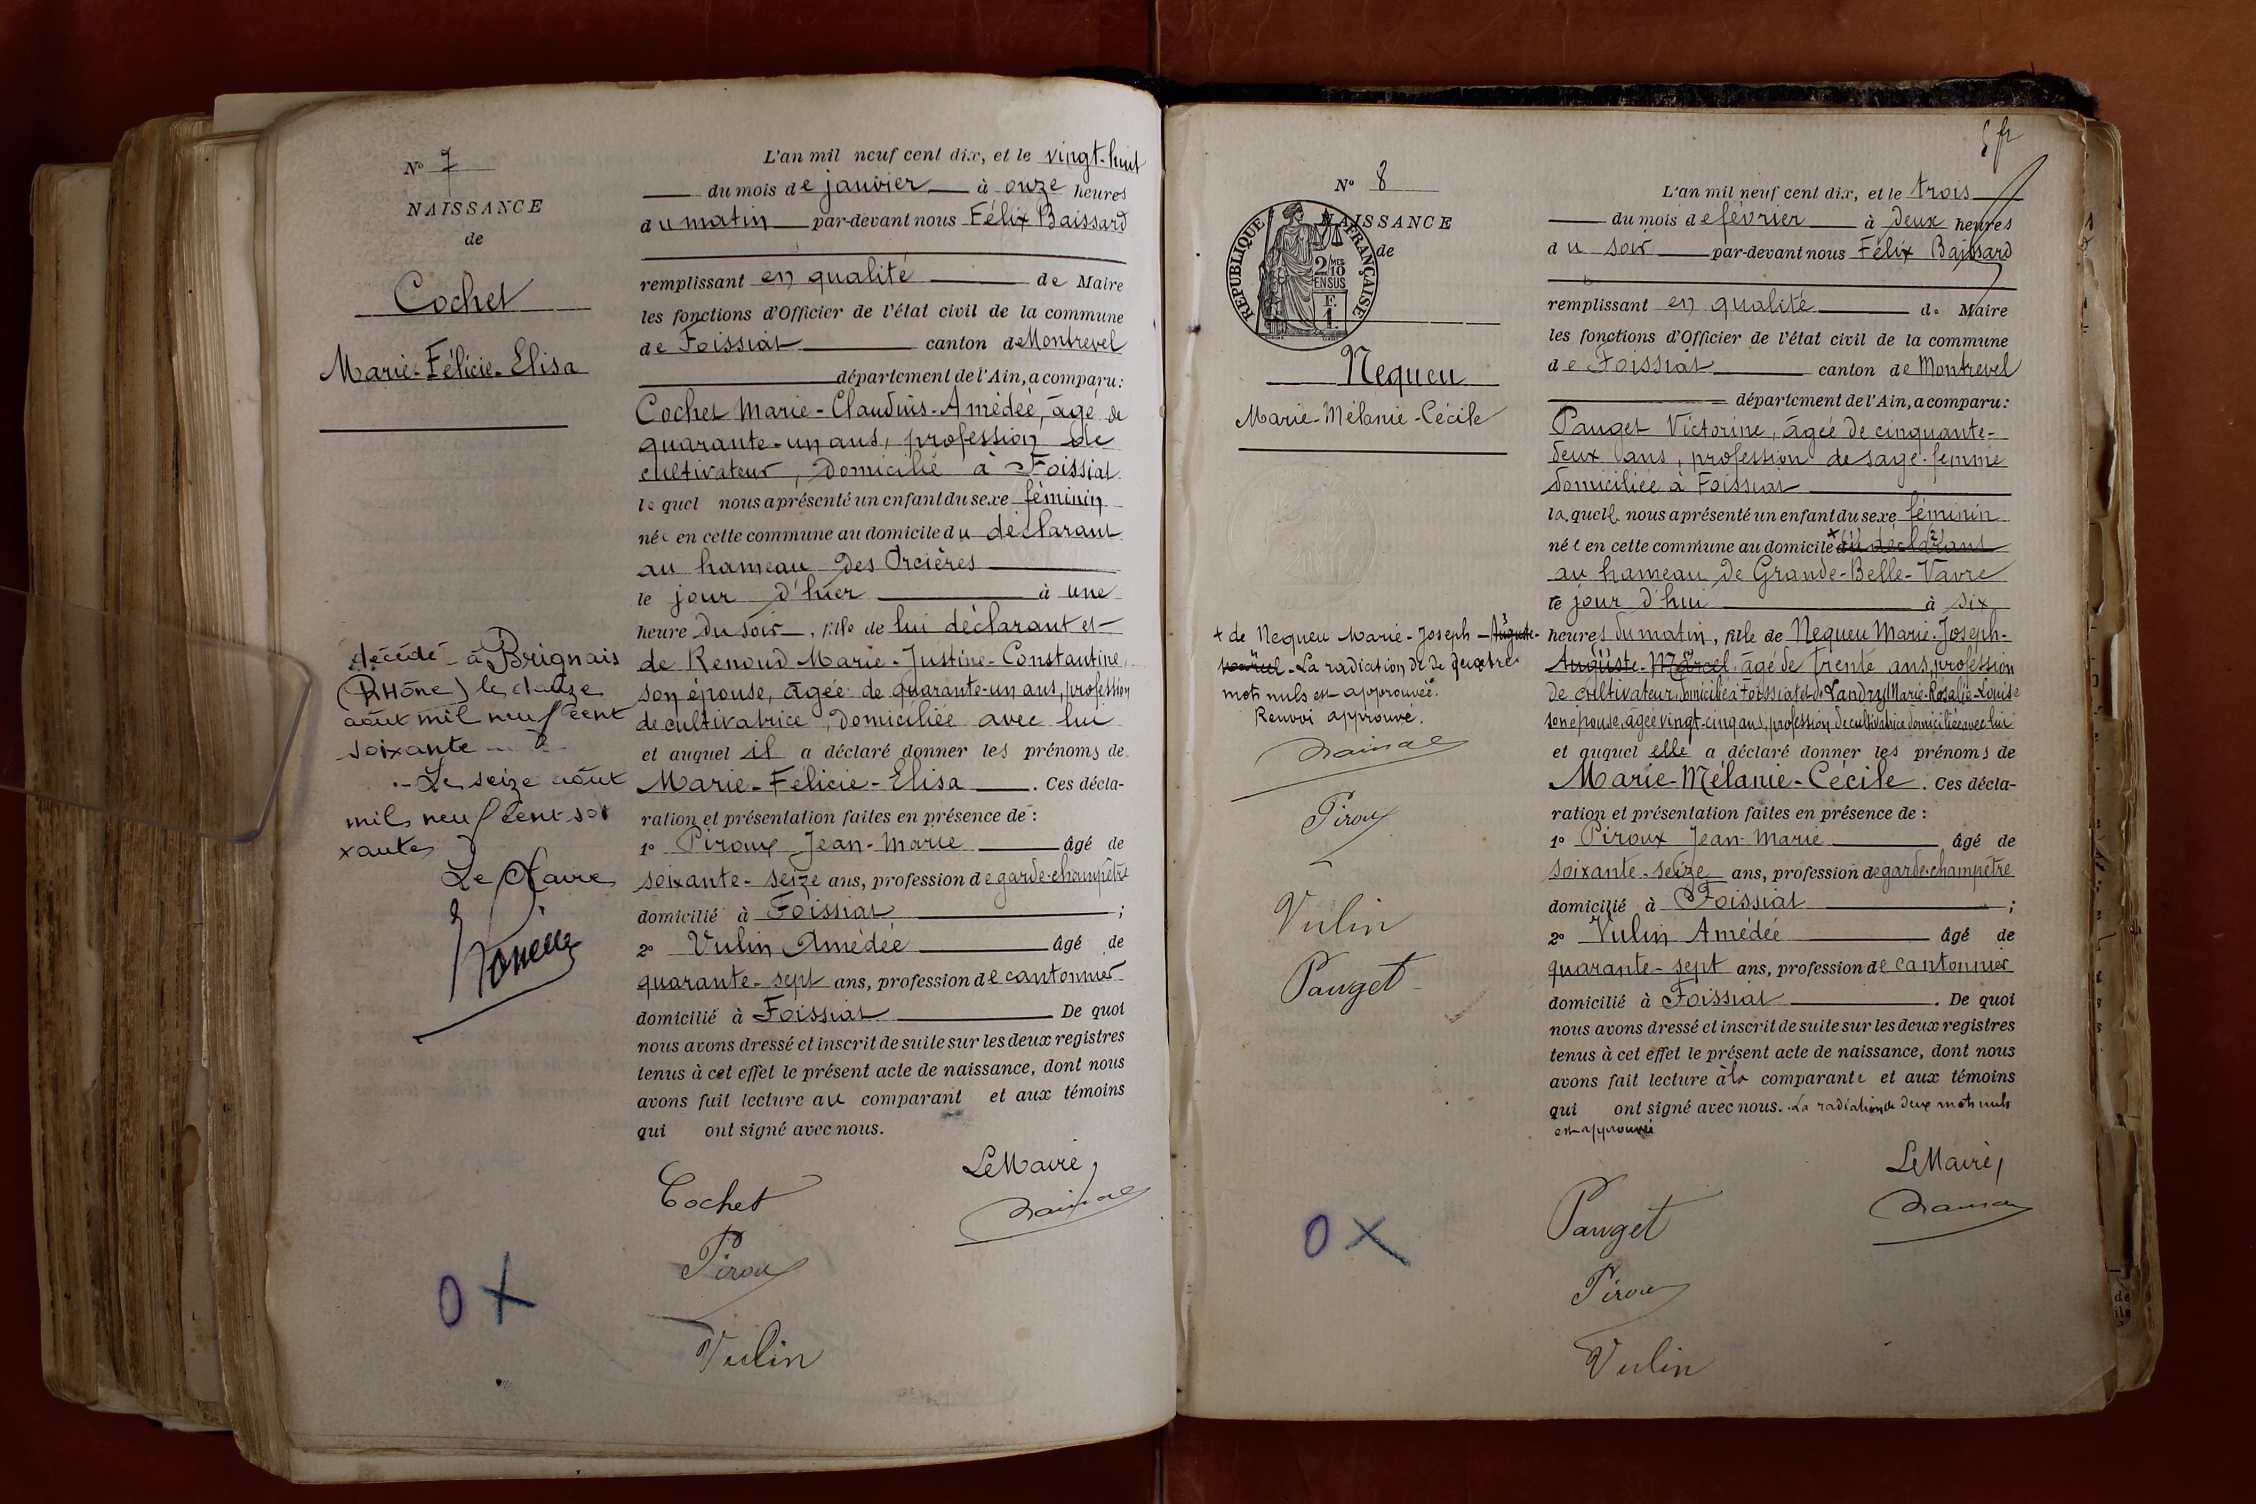 Nº 7
NAISSANCE
de
Cochet
Marie-Félicie-Elisa
décédé à Brignais
(Rhône) le douze
août mil neuf cent
soixante
Le seize août
mil neuf cent soi
xante
Le Maire
L'an mil neuf cent dix, et le vingt-huit
du mois de janvier à onze heures
du matin par-devant nous Félix Baissard
remplissant en qualité de Maire
les fonctions d'Officier de l'état civil de la commune
de Foissiat canton de Montrevel
département de l'Ain, a comparu:
Cochet Marie-Claudius-Amédée, âgé de
quarante-un ans, profession de
cultivateur, domicilié à Foissiat
lequel nous a présenté un enfant du sexe féminin
née en cette commune au domicile du déclarant
au hameau des Orcières
le jour d'hier à une
heure du soir, fille de lui déclarant et
de Renoud Marie-Justine-Constantine,
son épouse, âgée de quarante-un ans, profession
de cultivatrice, domiciliée avec lui
et auquel il a déclaré donner les prénoms de
Marie-Félicie-Elisa. Ces décla-
ration et présentation faites en présence de:
1º Piroux Jean-Marie âgé de
soixante-seize ans, profession de garde-champêtre
domicilié à Foissiat;
2º Vulin Amédée âgé de
quarante-sept ans, profession de cantonnier
domicilié à Foissiat De quoi
nous avons dressé et inscrit de suite sur les deux registres
tenus à cet effet le présent acte de naissance, dont nous
avons fait lecture au comparant et aux témoins
qui ont signé avec nous.
Le Maire,
Cochet
Piroux
Vulin
O X
5 fr
Nº 8
NAISSANCE
de
REPUBLIQUE FRANÇAISE
2/10
MES
EN SUS
F.
1.
Nequeu
Marie-Mélanie-Cécile
+ de Nequeu Marie-Joseph-Auguste-
Marcel. La radiation de
mots nuls est approuvée.
Renvoi approuvé.
Piroux
Vulin
Pauget
L'an mil neuf cent dix, et le trois
du mois de février à deux heures
du soir par-devant nous Félix Baissard
remplissant en qualité de Maire
les fonctions d'Officier de l'état civil de la commune
de Foissiat canton de Montrevel
département de l'Ain, a comparu:
Pauget Victorine, âgée de cinquante-
deux ans, profession de sage-femme
domiciliée à Foissiat
laquelle nous a présenté un enfant du sexe féminin
née en cette commune au domicile + du déclarant
au hameau de Grande-Belle-Vavre
le jour d'hui à six
heures du matin, fille de Nequeu Marie-Joseph-
Auguste-Marcel, âgé de trente ans, profession
de cultivateur, domicilié à Foissiat et de Landry Marie-Rosalie-Louise
son épouse, âgée vingt-cinq ans, profession de cultivatrice domiciliée avec lui
et auquel elle a déclaré donner les prénoms de
Marie-Mélanie-Cécile. Ces décla-
ration et présentation faites en présence de:
1º Piroux Jean-Marie âgé de
soixante-seize ans, profession de garde-champêtre
domicilié à Foissiat;
2º Vulin Amédée âgé de
quarante-sept ans, profession de cantonnier
domicilié à Foissiat. De quoi
nous avons dressé et inscrit de suite sur les deux registres
tenus à cet effet le présent acte de naissance, dont nous
avons fait lecture à la comparante et aux témoins
qui ont signé avec nous. La radiation de deux mots nuls
est approuvée
Le Maire,
Pauget
Piroux
Vulin
O X